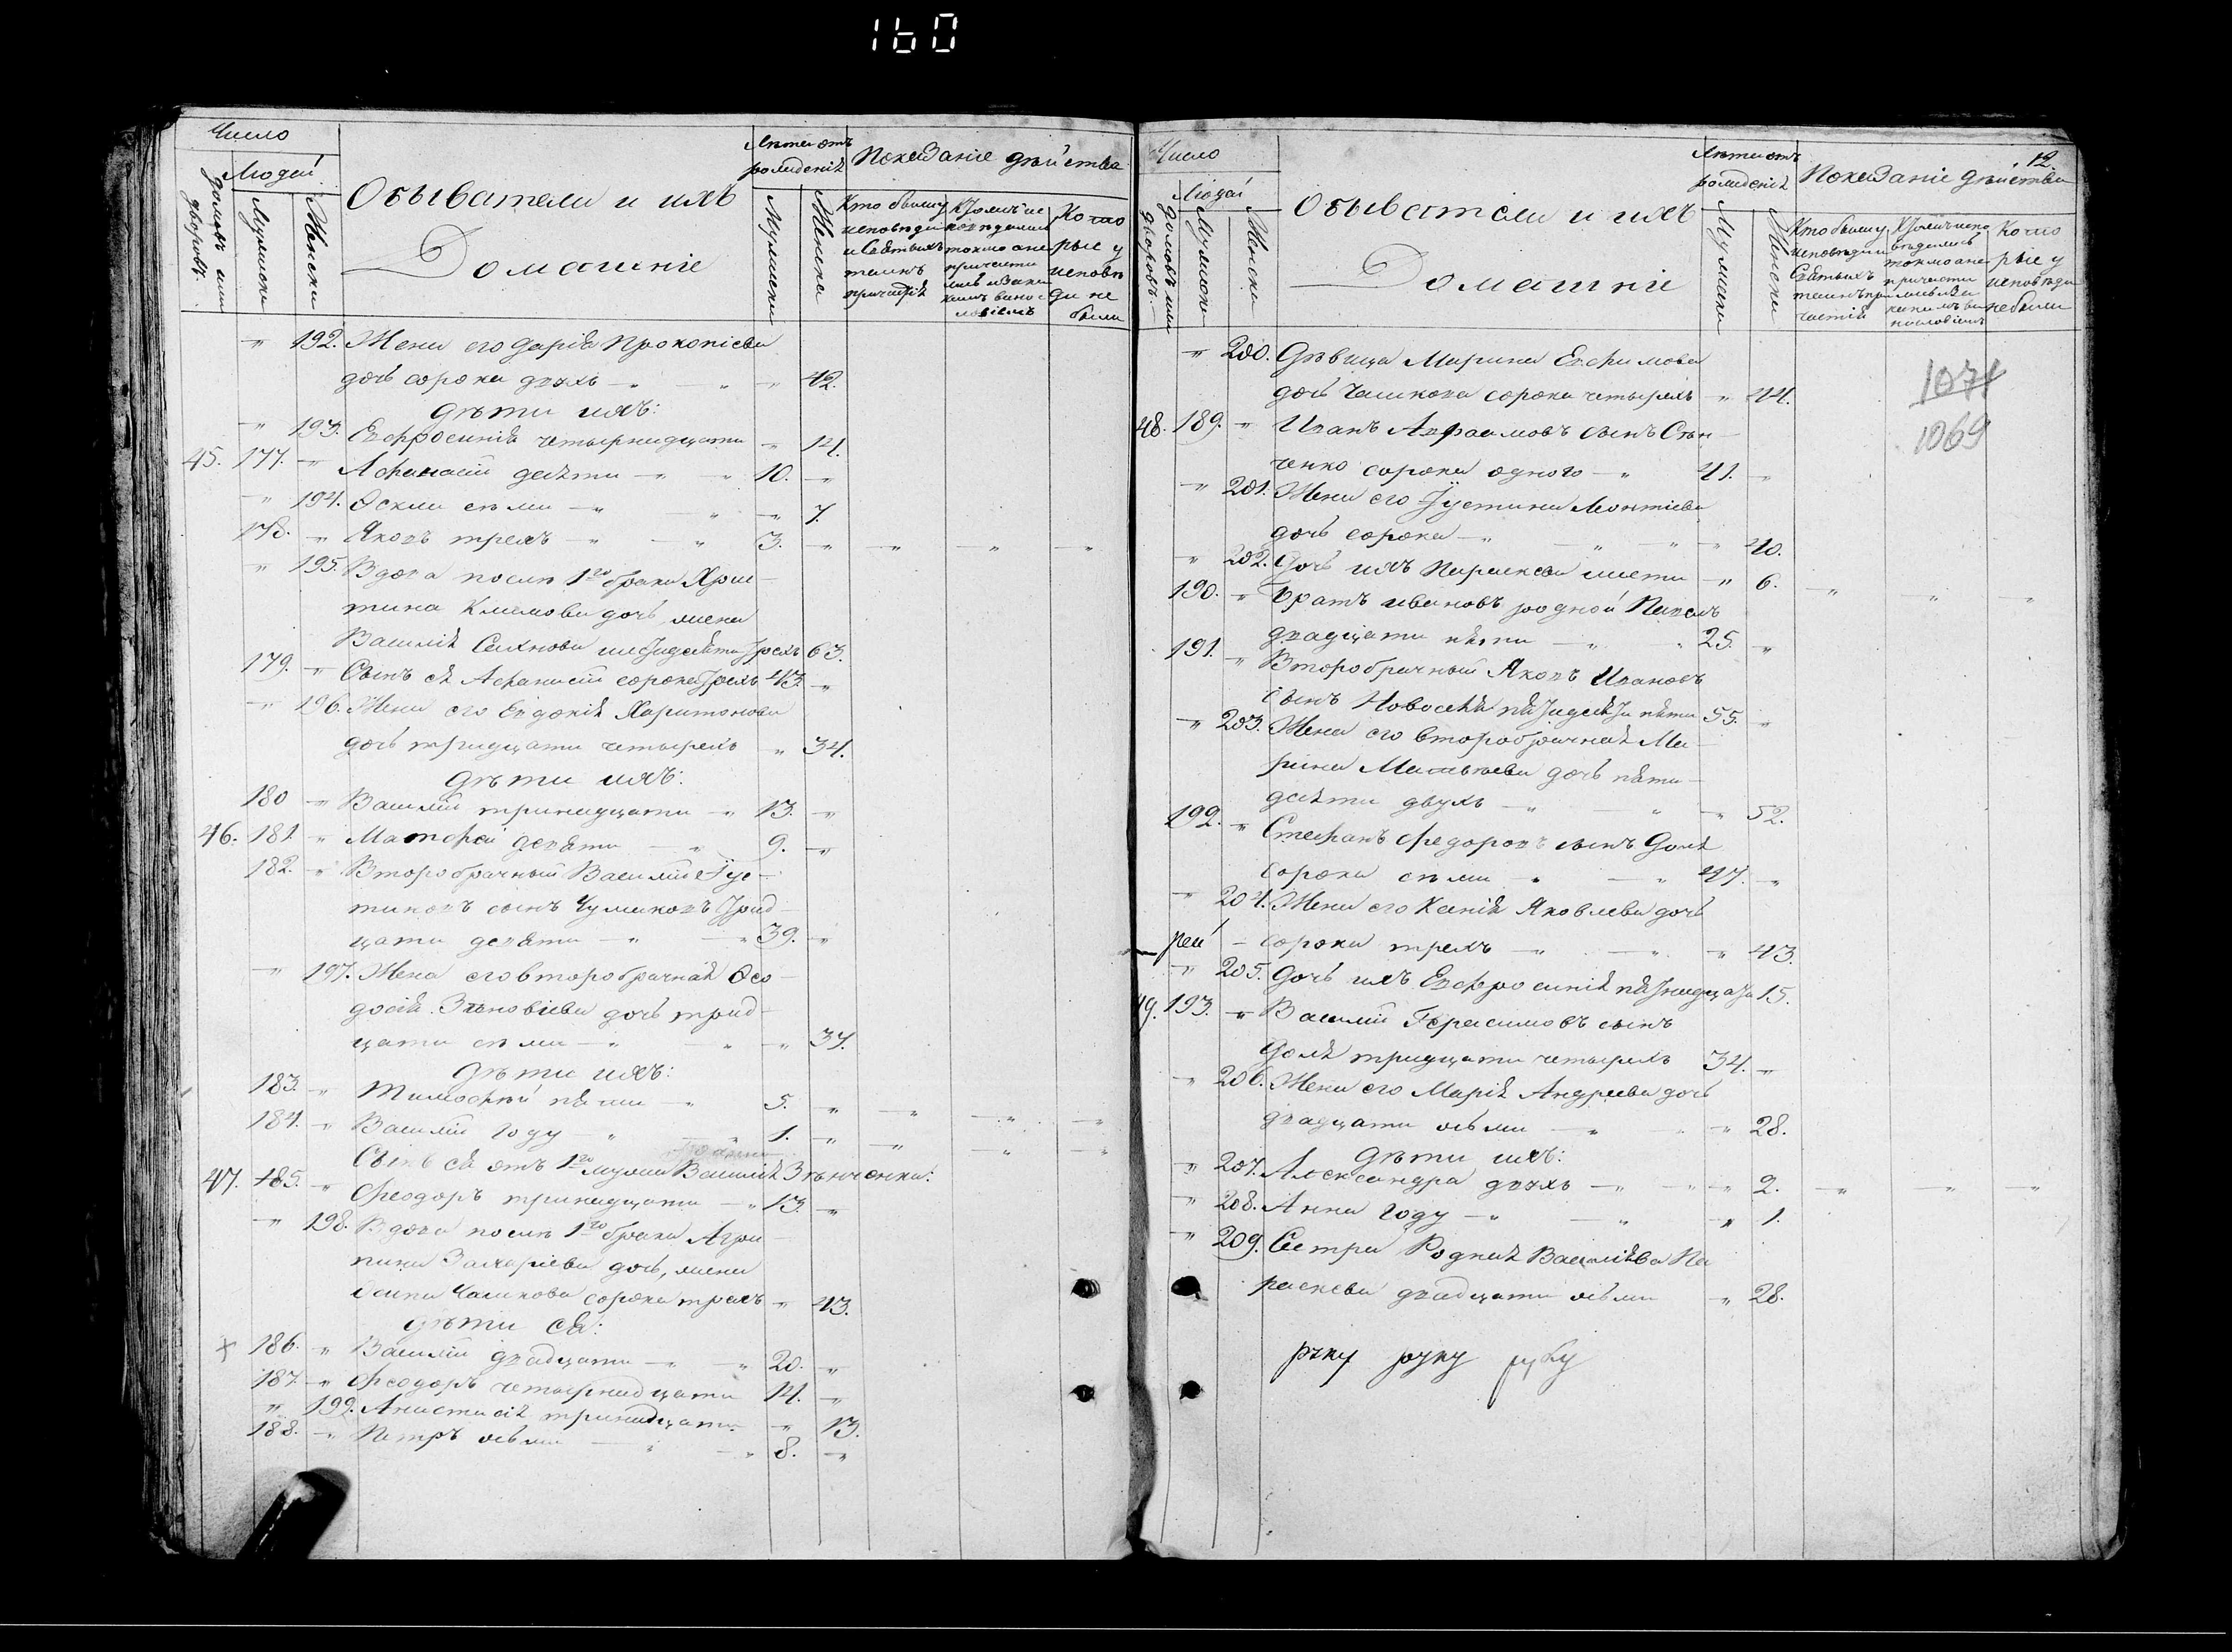 160
Число
Людей
домовъ или дворовъ.
Мужески
Женски
Обыватели и ихъ
Домашніе
Лѣта отъ рожденія
Мужески
Женски
Показаніе дѣйства
Кто былъ у исповѣди и Святыхъ таинъ причастія
Которые у исповѣди не были
" 192. Жена его Дарія Прокопіева
дочь сорока двухъ " " 42.
дѣти ихъ:
" 193. Евфросинія четырнадцати " 14.
45. 177. " Афанасій десяти " " 10. "
" 194. Ѳекла семи " " " 7.
178. " Яковъ трехъ " " 3. " " " "
" 195. Вдова послѣ 1го брака Хрис-
тина Климова дочь, жена
Василія шестидесяти трехъ 63.
179. " Сынъ ея Афанасій сорока трехъ 43. "
" 196. Жена его Евдокія Харитонова
дочь тридцати четырехъ " 34.
дѣти ихъ:
180 " Василій тринадцати " 13. "
46. 181. " Матфей девяти " 9. "
182. " Второбрачный Василій Іус-
тиновъ сынъ Чумаковъ трид-
цати девяти " " 39. "
" 197. Жена его второбрачная Ѳео-
досія Зѣновіева дочь трид-
цати семи " " " 37.
дѣти ихъ:
183. " Тимофѣй пяти " 5. " " " "
184. " Василій году " " 1. " " " "
Сынъ ея отъ 1го мужа Василія Зѣнченка:
47. 185. " Феодоръ тринадцати " 13. "
" 198. Вдова послѣ 1го брака Агри-
пина Захаріева дочь, жена
Осипа Чашкова сорока трехъ " 43.
дѣти ея:
х 186. " Василій двадцати " " 20. "
187. " Феодоръ четырнадцати 14. "
" 199. Анастасія тринадцати " 13.
188. " Петръ осьми " " 8. "
12.
Число
Людей
домовъ или дворовъ.
Мужески
Женски
Обыватели и ихъ
Домашніе
Лѣта отъ рожденія
Мужески
Женски
Показаніе дѣйства
Которые у исповѣди не были
1071
1069
" 200. Дѣвица Марина Евфимова
дочь Чашкова сорока четырехъ " 44.
48. 189. " Иванъ сынъ Сѣн-
ченко сорока одного " 41. "
" 201. Жена его Іустина Леонтіева
дочь сорока " " " " 40.
" 202. Дочь ихъ Параскева шести " 6. " " "
190. " Братъ Ивановъ родной Павелъ
двадцати пяти " " 25. "
191. " Второбрачный Яковъ Ивановъ
сынъ Новосея пятидесяти пяти 55. "
" 203. Жена его второбрачная Ма-
рина Матвѣева дочь пяти-
десяти двухъ " " " 52.
192. " Стефанъ Федоровъ сынъ Доля
сорока семи " " 47. "
" 204. Жена его Ксенія Яковлева дочь
рей сорока трехъ " " " 43.
" 205. Дочь ихъ Евфросинія пятнадцати 15.
49. 193. " Василій Герасимовъ сынъ
Доля тридцати четырехъ 34. "
" 206. Жена его Марія Андреева дочь
двадцати осьми " " 28.
дѣти ихъ:
" 207. Александра двухъ " " " 2. " " "
" 208. Анна году " " " 1.
" 209. Сестра Родная Васильева Па-
раскева двадцати осьми " 28.
руку руку руку